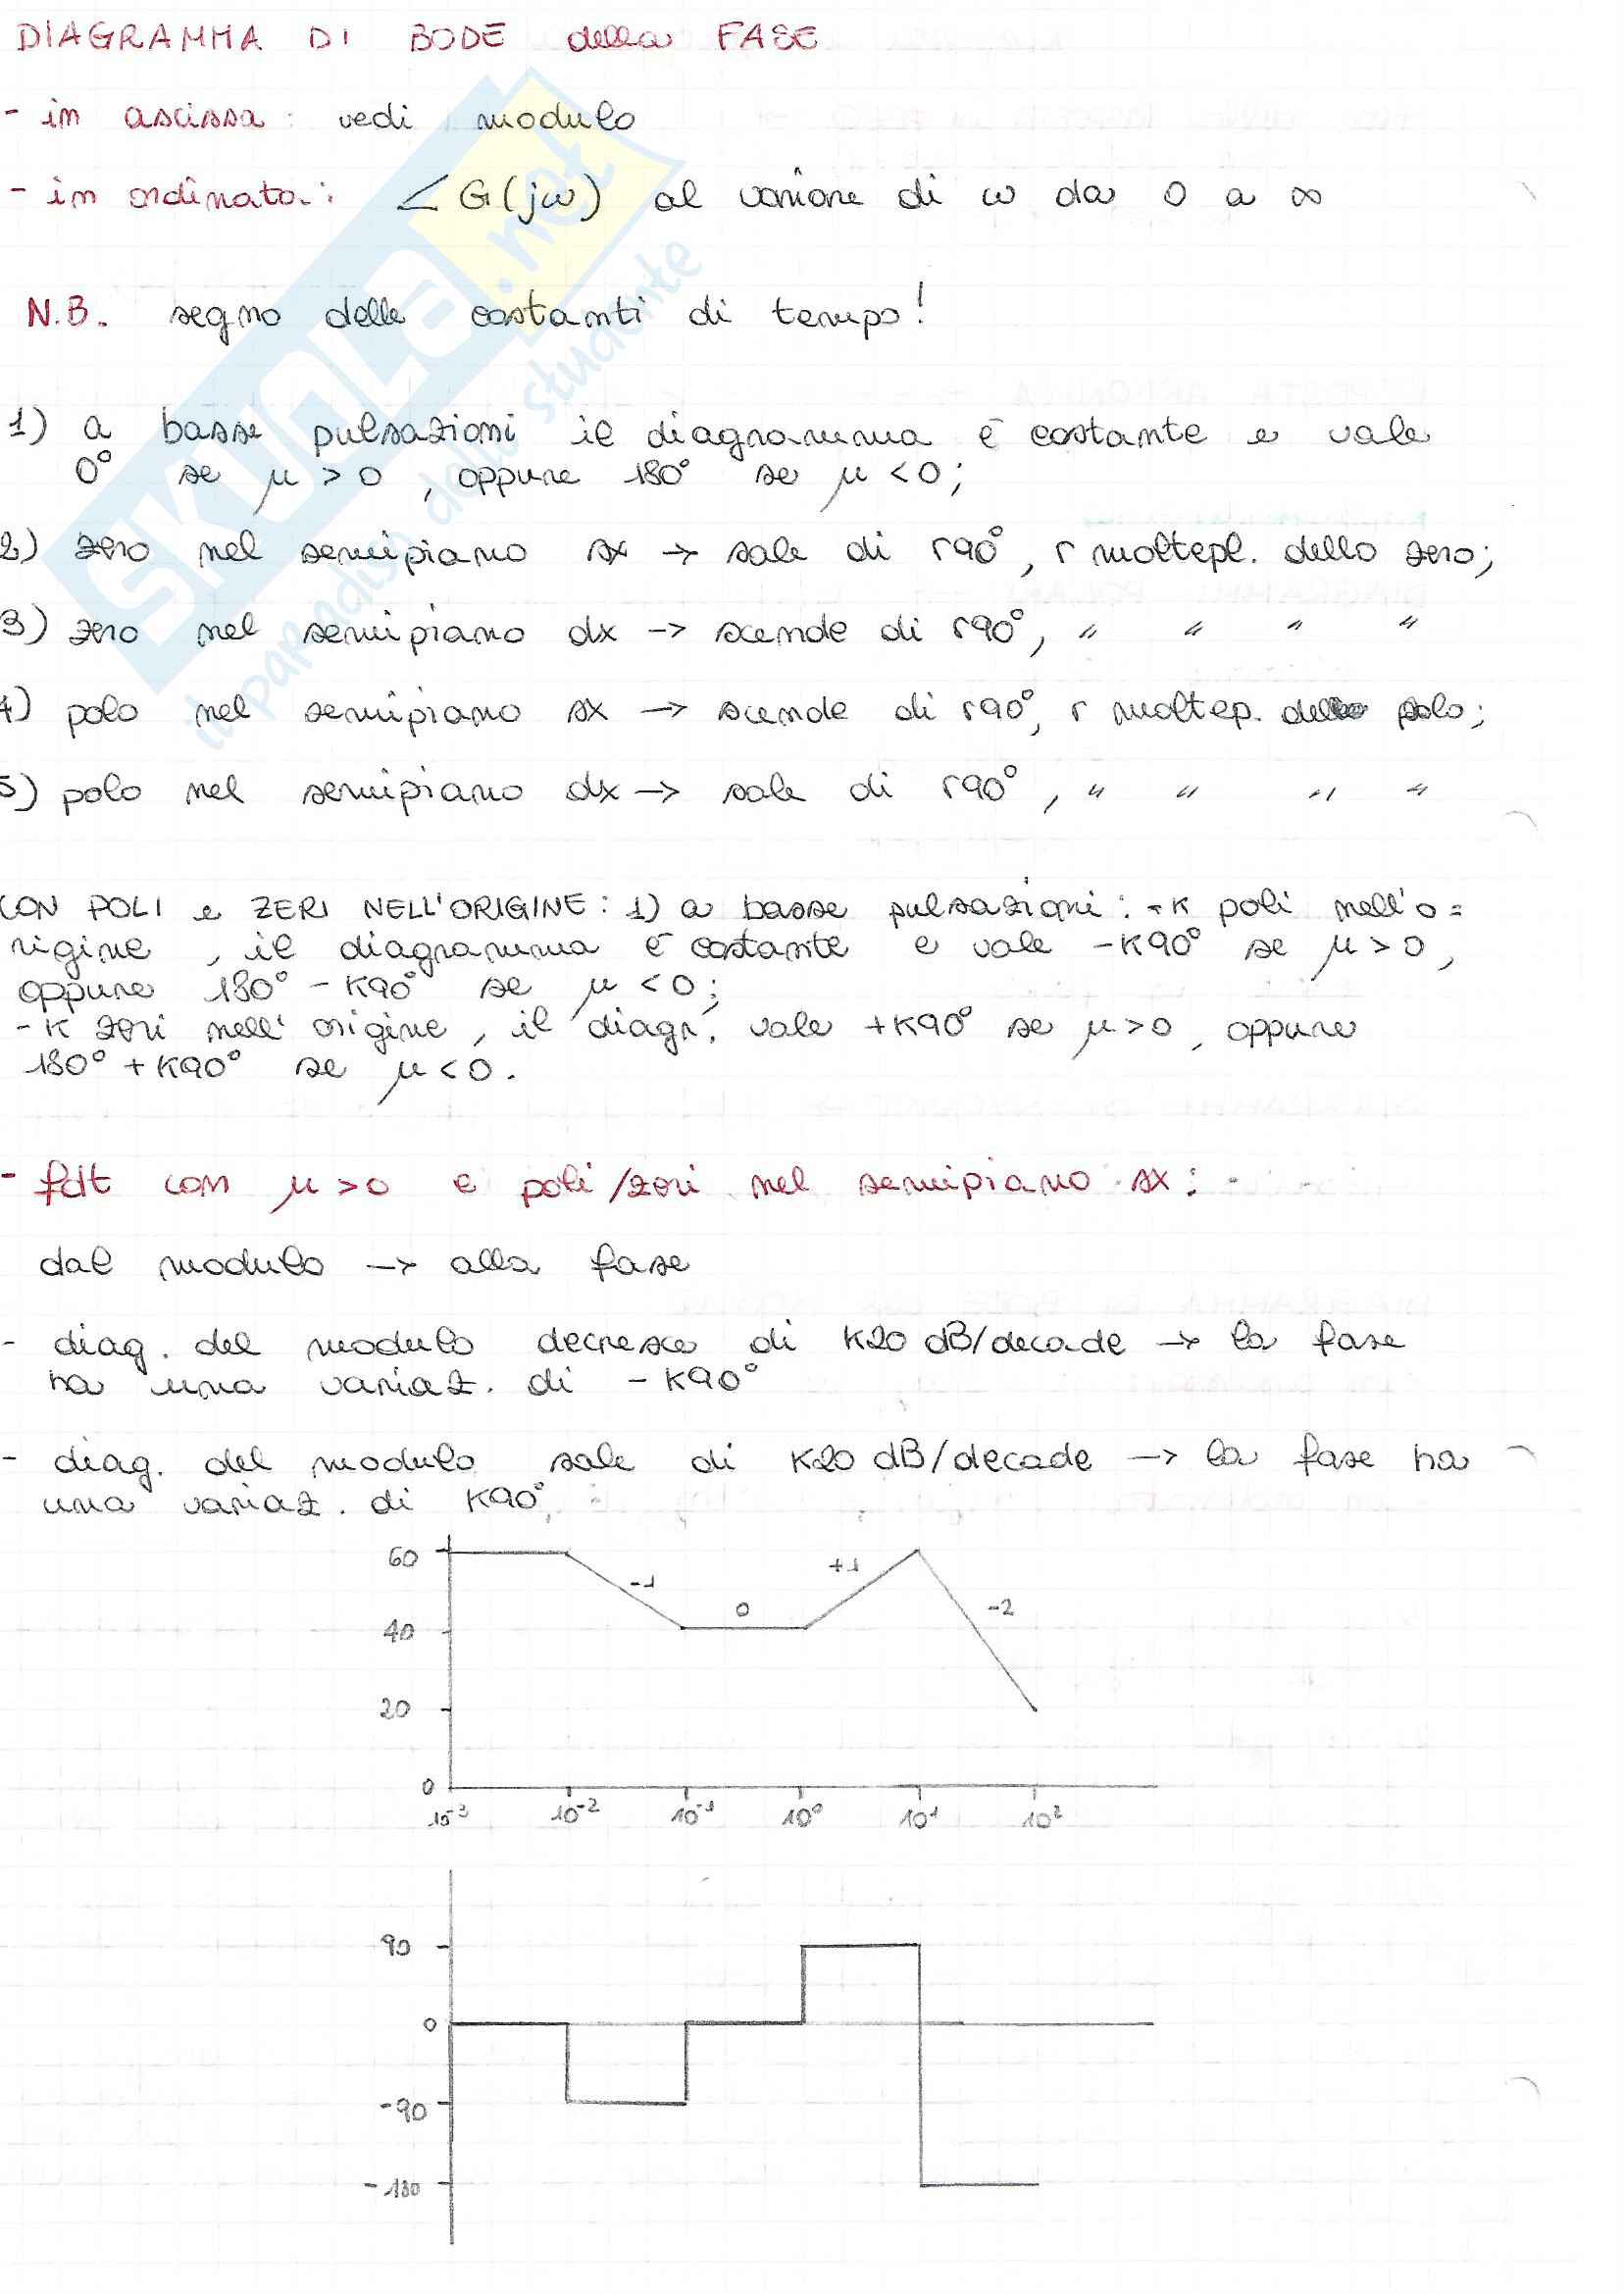 DIAGRAMMA DI BODE della FASE
- in ascissa: vedi modulo
- in ordinata: ∠G(jω) al variare di ω da 0 a ∞
N.B. segno delle costanti di tempo!
1) a basse pulsazioni il diagramma è costante e vale
0° se μ > 0, oppure 180° se μ < 0;
2) zero nel semipiano sx → sale di r90°, r moltepl. dello zero;
3) zero nel semipiano dx → scende di r90°, " " " "
4) polo nel semipiano sx → scende di r90°, r moltep. dello polo;
5) polo nel semipiano dx → sale di r90°, " " " "
CON POLI e ZERI NELL'ORIGINE: 1) a basse pulsazioni: - K poli nell'o=
rigine, il diagramma è costante e vale -K90° se μ > 0,
oppure 180° - K90° se μ < 0;
- K zeri nell'origine, il diagr. vale +K90° se μ > 0, oppure
180° + K90° se μ < 0.
- fdt con μ > 0 e poli/zeri nel semipiano sx:
dal modulo → alla fase
- diag. del modulo decresce di K20 dB/decade → la fase
ha una variaz. di -K90°
- diag. del modulo sale di K20 dB/decade → la fase ha
una variaz. di K90°
60
-1
0
+1
-2
40
20
0
10⁻³ 10⁻² 10⁻¹ 10⁰ 10¹ 10²
90
0
-90
-180
SKUOLA.net
il paradiso dello studente